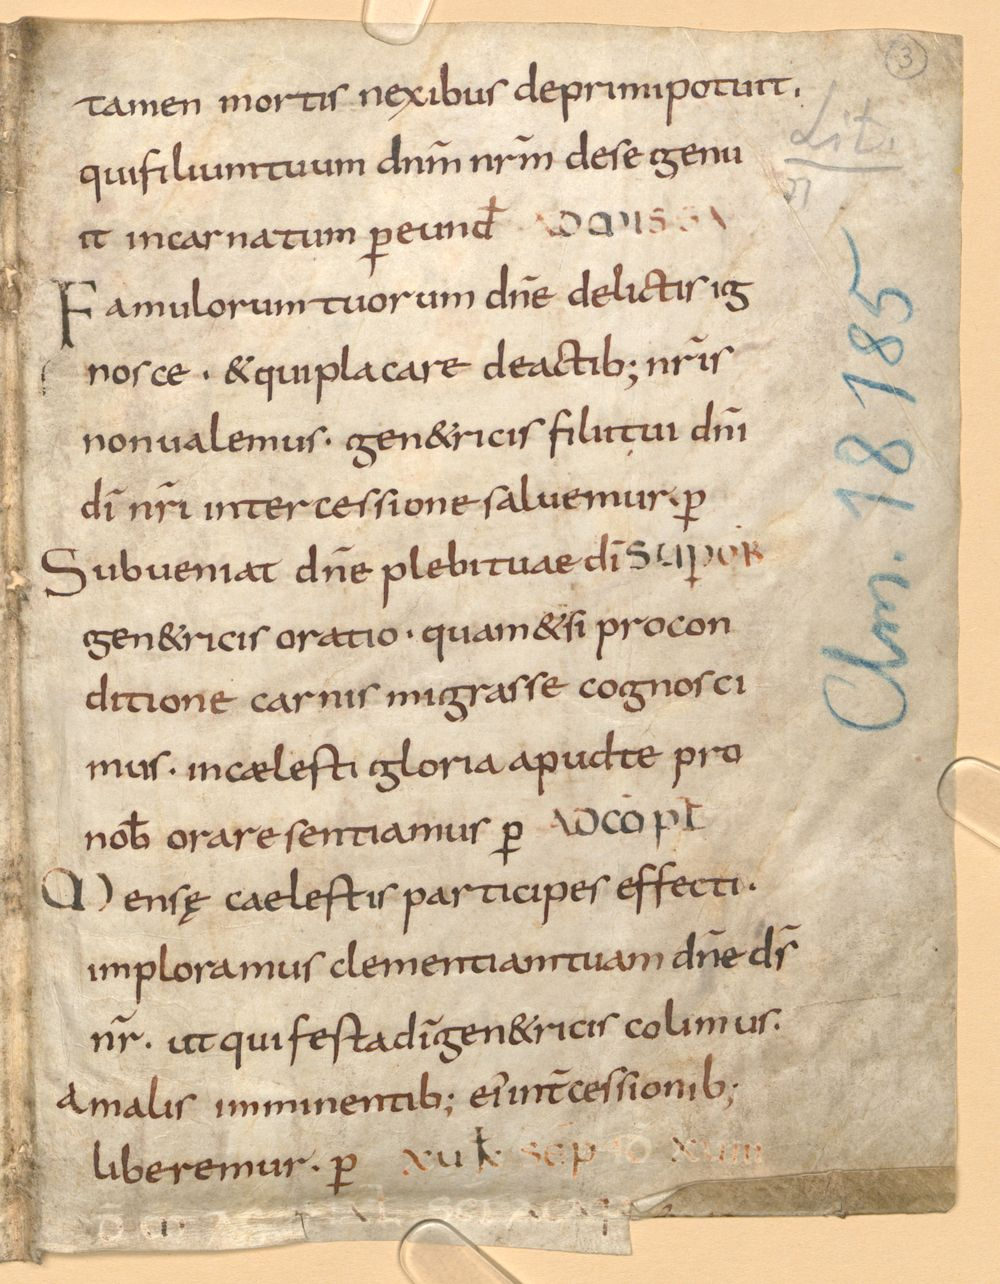 3
tamen mortis nexibus deprimi potuit.
Lit.
qui filium tuum dnm̄ nrm̄ de se genu
it incarnatum ꝑ eund̄ AD MISSA
Famulorum tuorum dnē delictis ig
nosce · & qui placare de actib; nrīs
non ualemus · gen&ricis filii tui dnī
dī nrī intercessione saluemur · ꝑ
Subueniat dnē plebi tuae dī SUPER
gen&ricis oratio · quam &si pro con
ditione carnis migrasse cognosci
mus · in cælesti gloria apud te pro
nob̄ orare sentiamus ꝑ AD COPL
Mensę caelestis participes effecti ·
imploramus clementiam tuam dnē ds̄
nr̄ · ut qui festa dī gen&ricis colimus ·
a malis imminentib; eis̄ int̄cessionib;
liberemur · ꝑ
Clm. 18 185